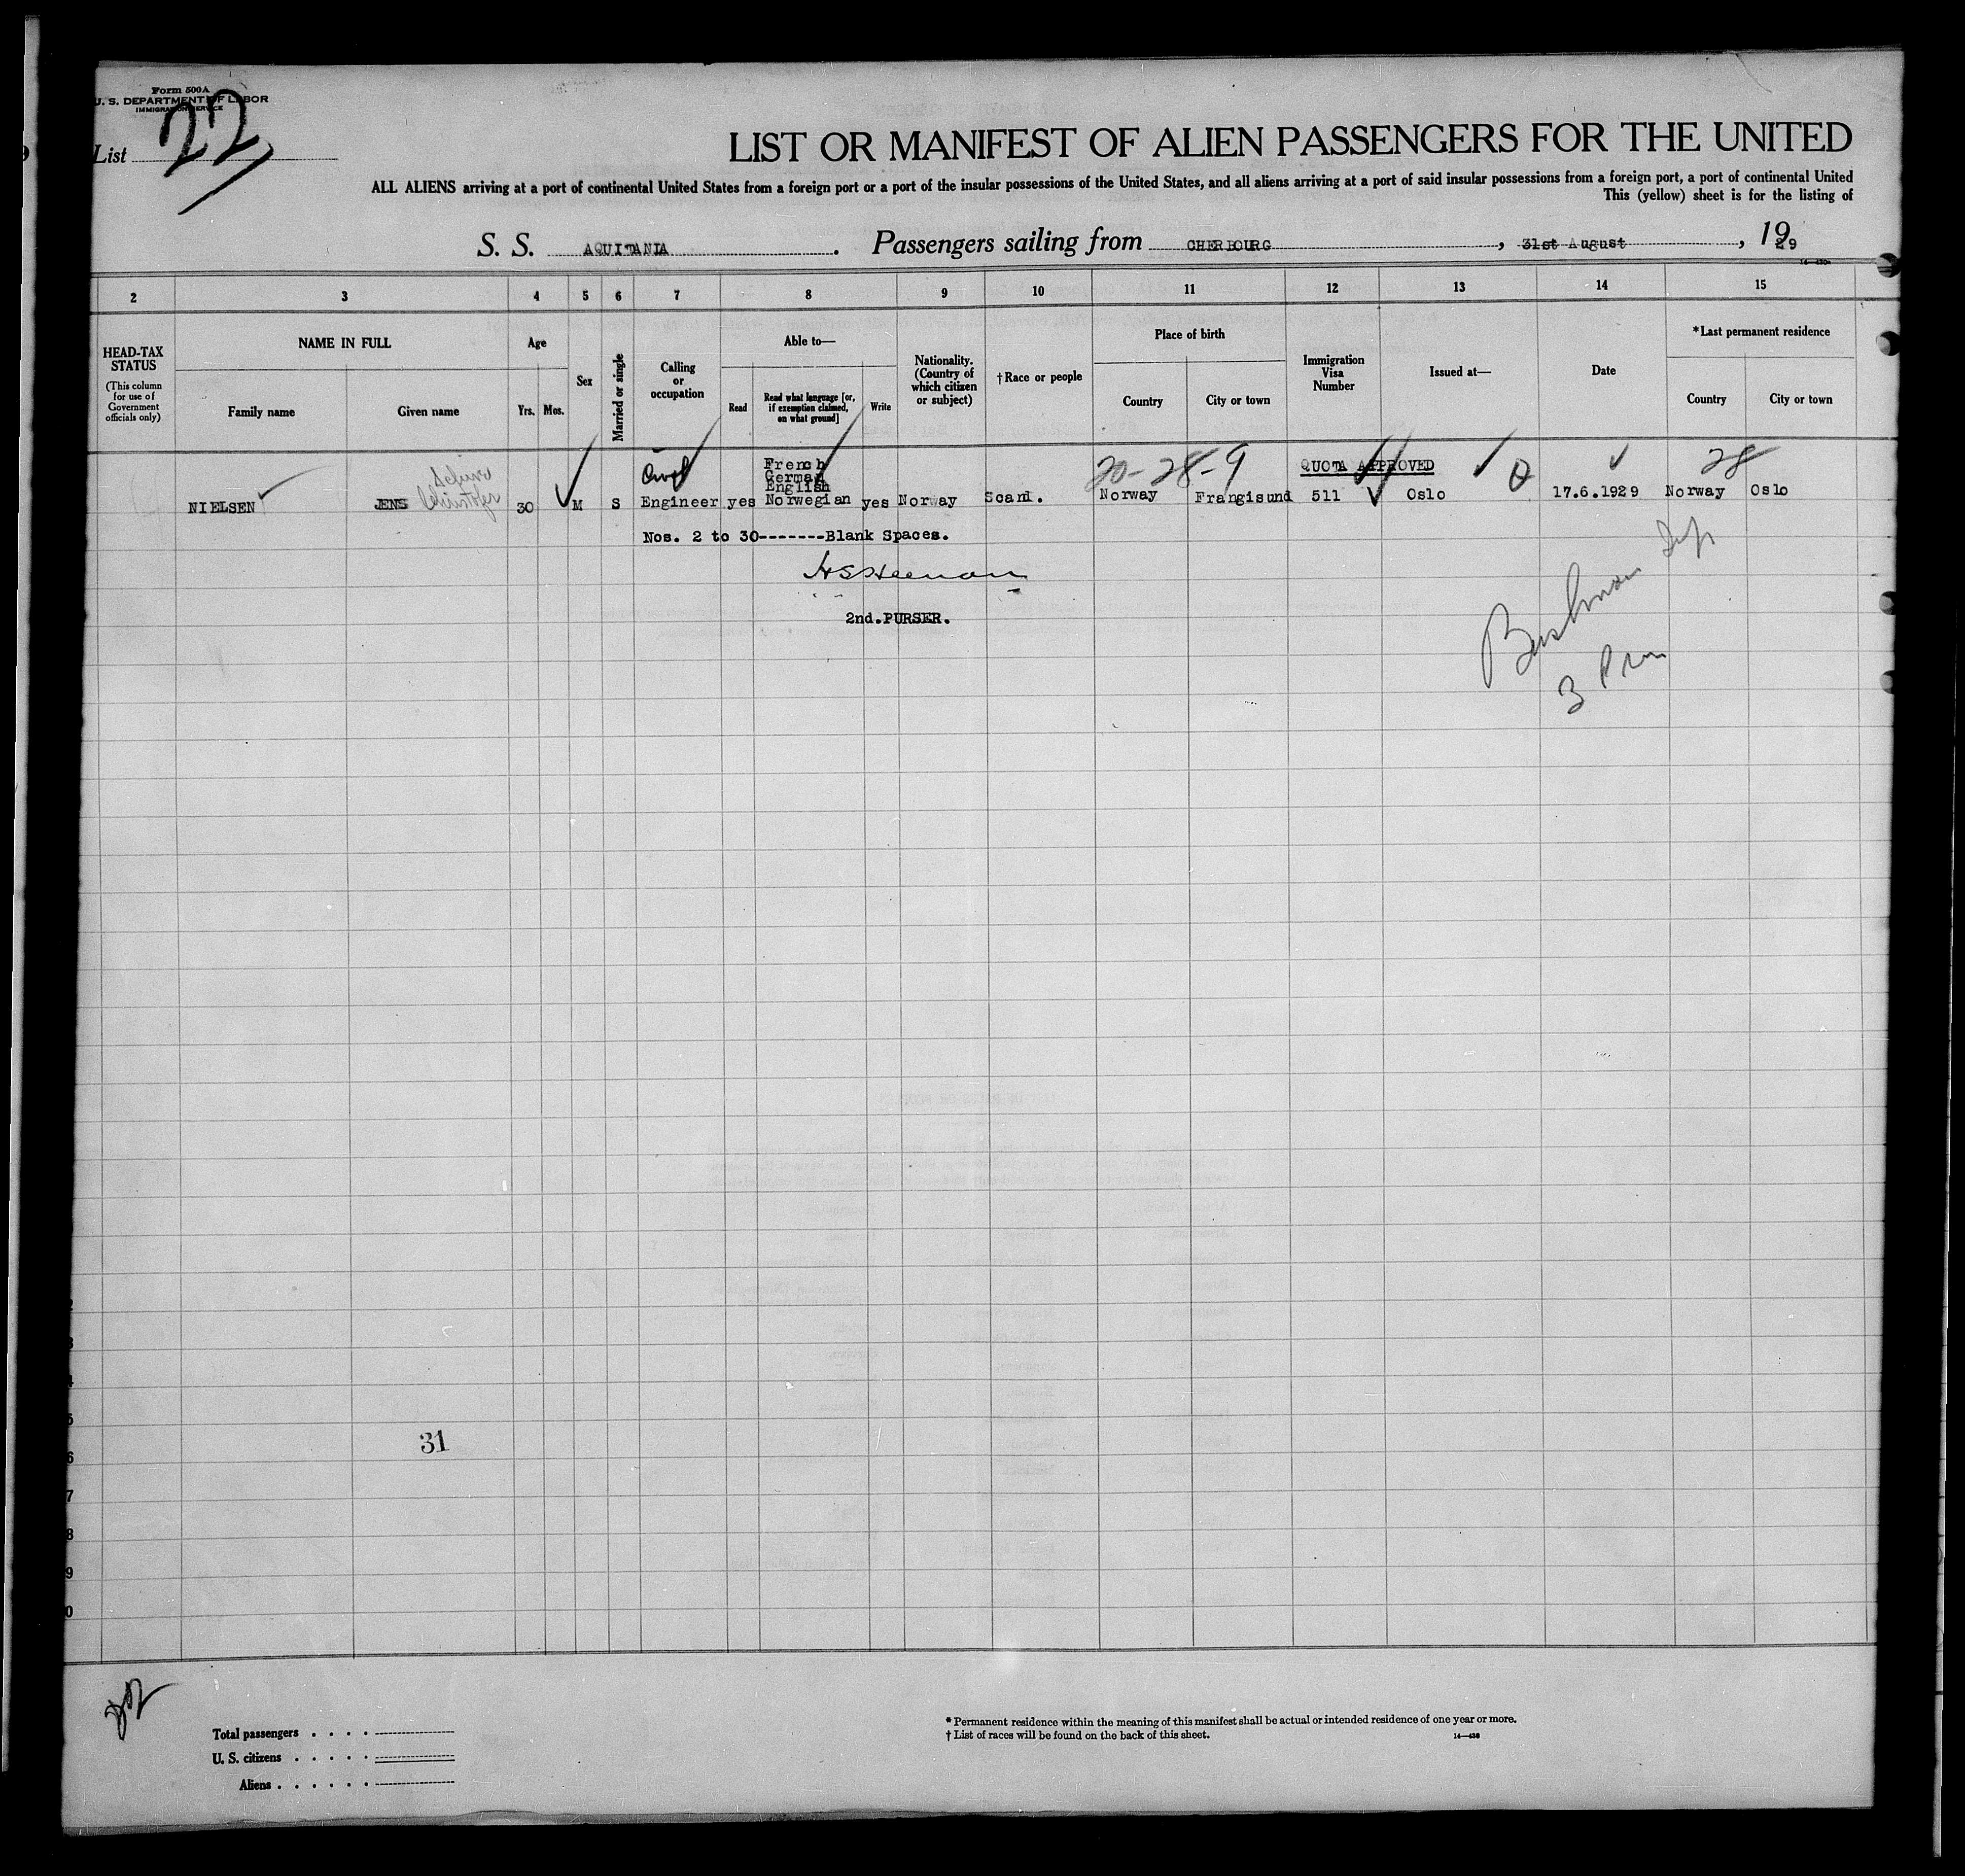 Form 500A
U. S. DEPARTMENT OF LABOR
IMMIGRATION SERVICE
List 22
LIST OR MANIFEST OF ALIEN PASSENGERS FOR THE UNITED
ALL ALIENS arriving at a port of continental United States from a foreign port or a port of the insular possessions of the United States, and all aliens arriving at a port of said insular possessions from a foreign port, a port of continental United
This (yellow) sheet is for the listing of
S. S. AQUITANIA. Passengers sailing from CHERBOURG, 31st August, 1929
2 3 4 5 6 7 8 9 10 11 12 13 14 15
HEAD-TAX STATUS
(This column for use of Government officials only)
NAME IN FULL
Family name
Given name
Age
Yrs. Mos.
Sex
Married or single
Calling or occupation
Able to—
Read
Read what language [or, if exemption claimed, on what ground]
Write
Nationality. (Country of which citizen or subject)
†Race or people
Place of birth
Country
City or town
Immigration Visa Number
Issued at—
Date
*Last permanent residence
Country
City or town
Civil
French
German
English
20-28-9
QUOTA APPROVED
28
NIELSEN JENS 30 M S Engineer yes Norwegian yes Norway Scand. Norway Frangisund 511 Oslo 17.6.1929 Norway Oslo
Nos. 2 to 30-------Blank Spaces.
2nd.PURSER.
3 Pm
31
Total passengers . . . .
U. S. citizens . . . . .
Aliens . . . . . .
* Permanent residence within the meaning of this manifest shall be actual or intended residence of one year or more.
† List of races will be found on the back of this sheet.